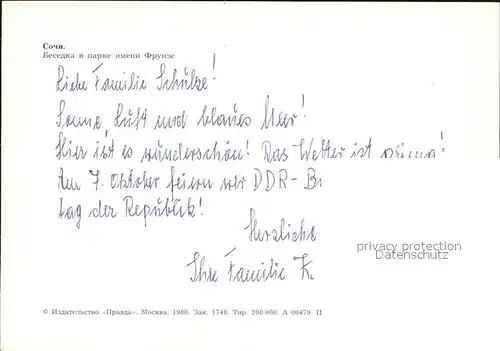 Сочи.
Беседка в парке имени Фрунзе.
Liebe Familie Schulze!
Sonne, Luft und blaues Meer!
Hier ist es wunderschön! Das Wetter ist prima!
Am 7. Oktober feiern wir DDR-
tag der Republik!
Herzliche
Ihre Familie K.
privacy protection
Datenschutz
© Издательство «Правда». Москва. 1988. Зак. 1748. Тир. 200 000. А 00479. П